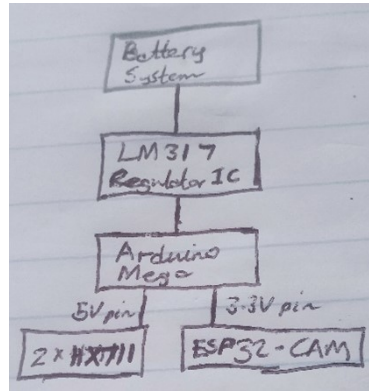 Battery
System
LM317
Regulator IC
Arduino
Mega
5V pin
3.3V pin
2x HX711
ESP32-CAM